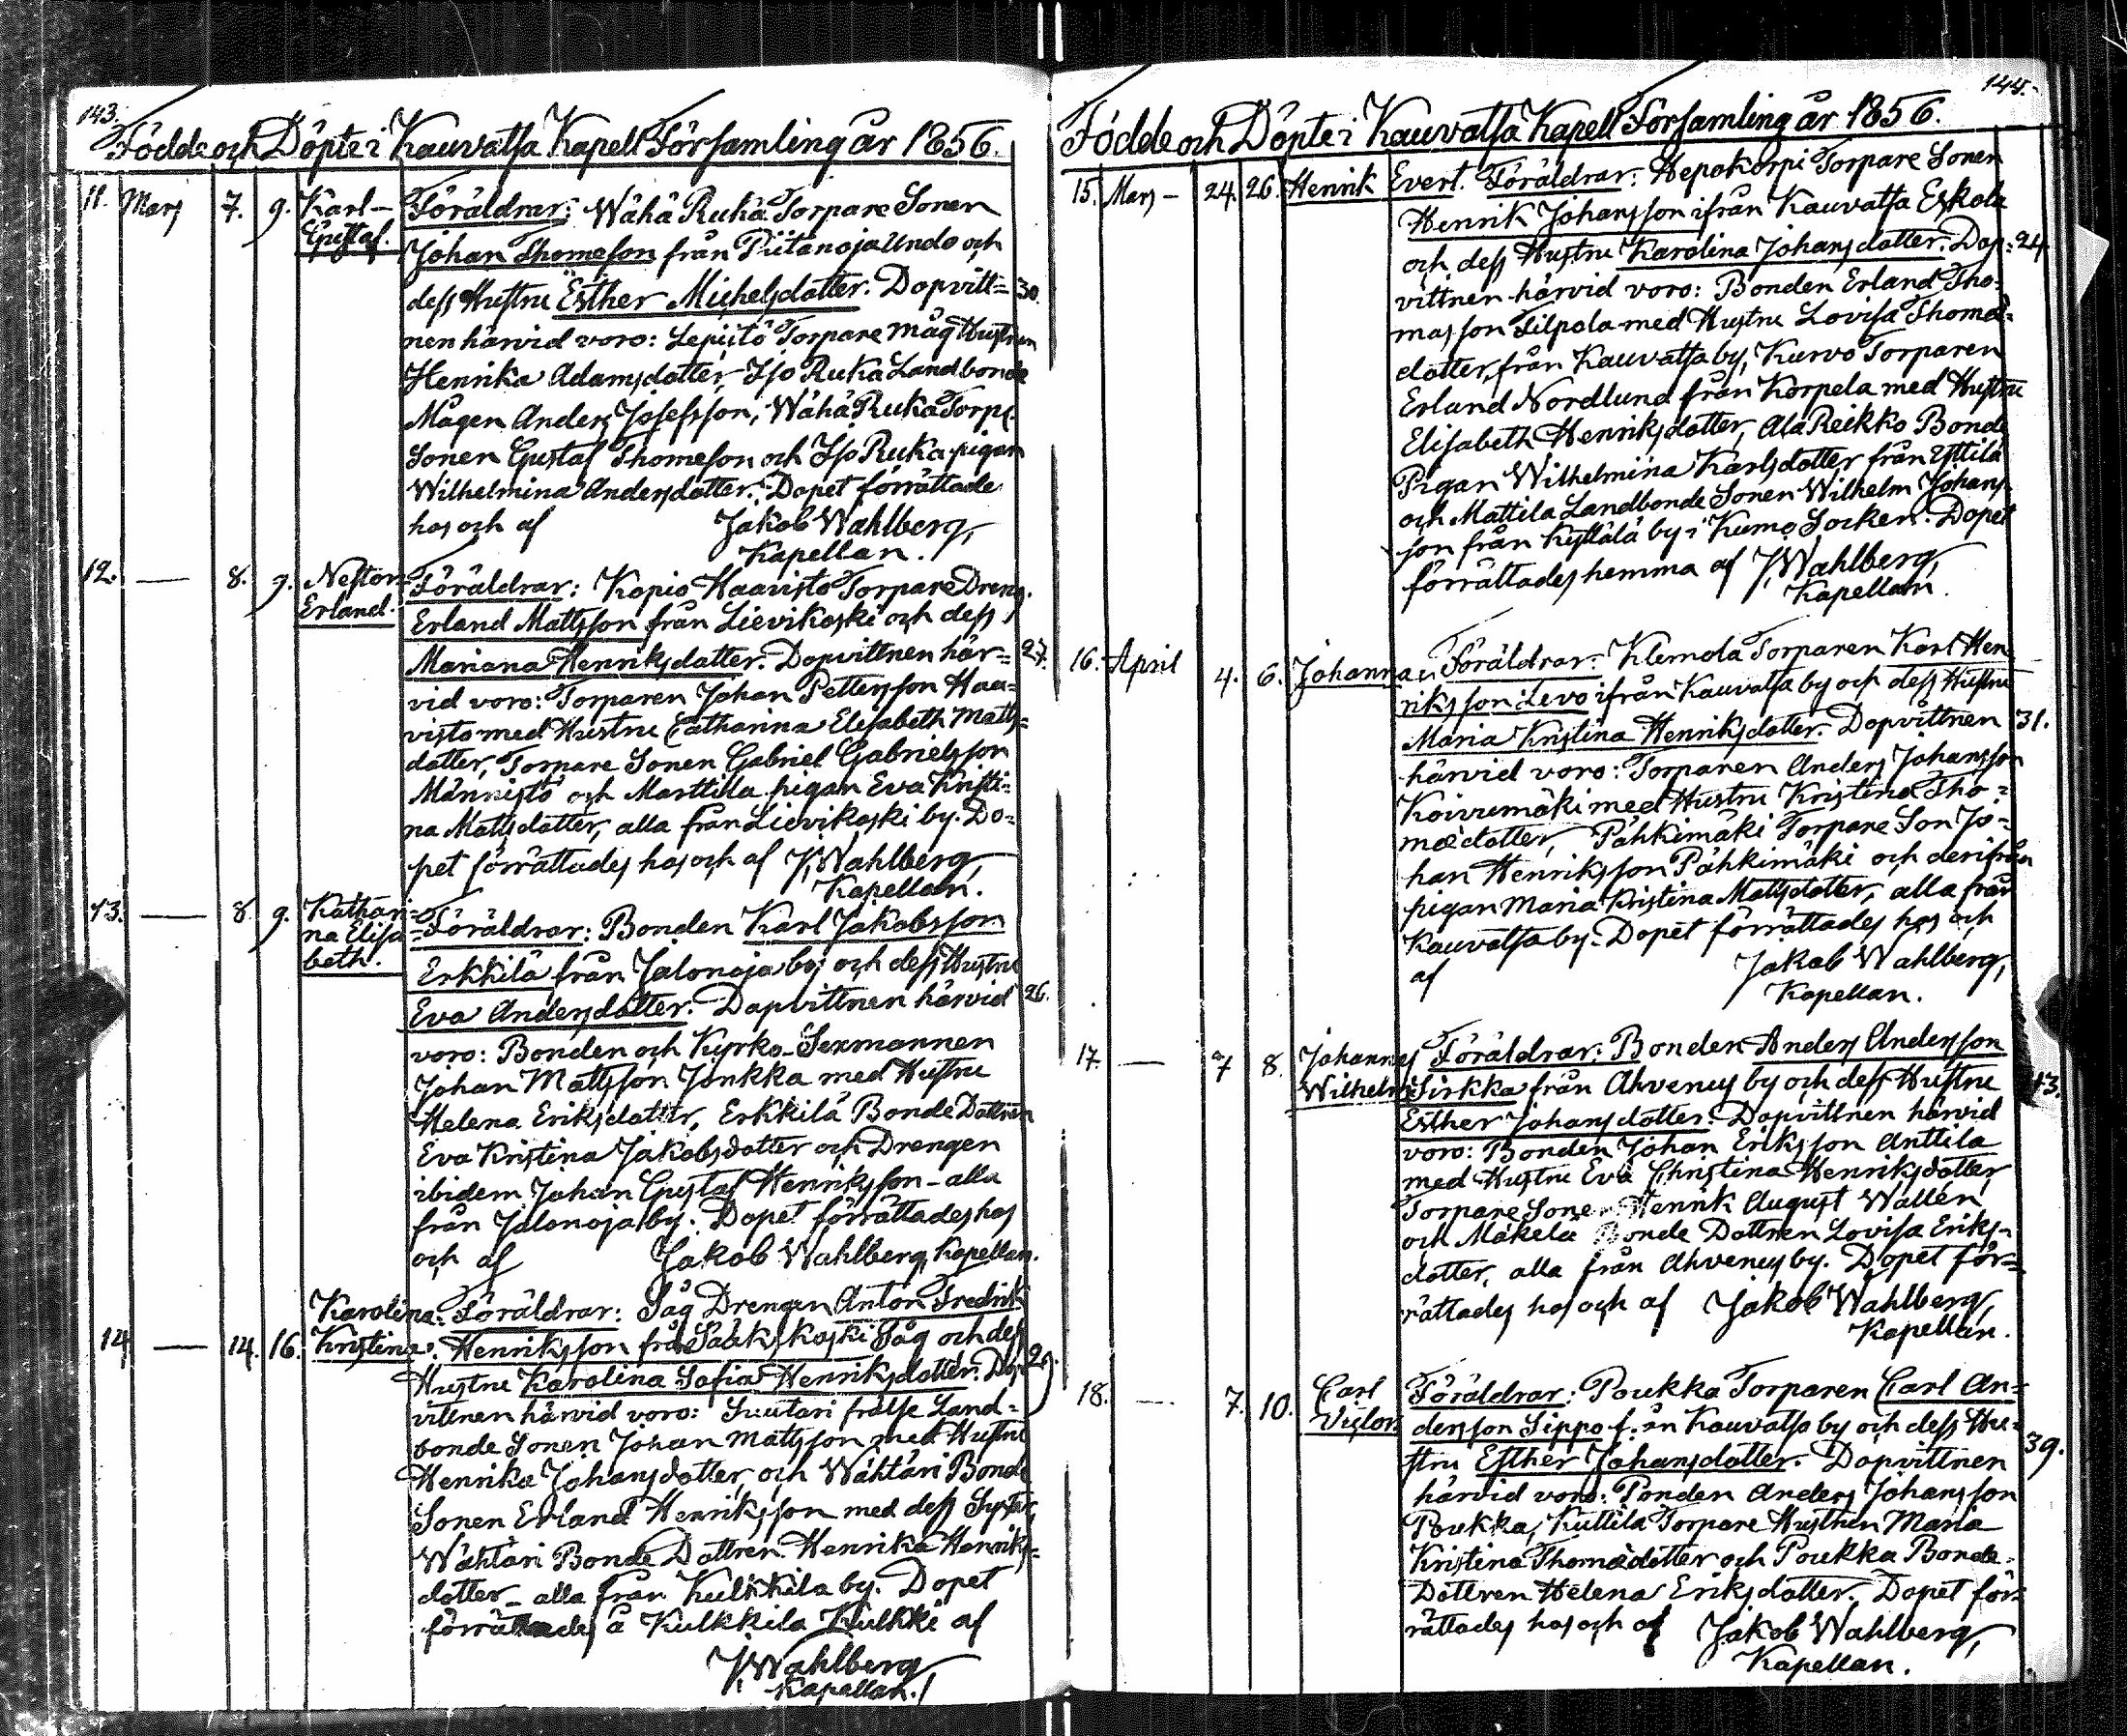 143.
Födde och Döpte i Kauvatsa Kapell Församling år 1856.
11. Mars 7. 9. Karl- Föräldrar: Wähä Ruka Torpare Sonen
Gustaf. Johan Thomeson från Piitanoja Undo och
dess Hustru Esther Michelsdotter. Dopvitt= 30.
nen härvid voro: Lepistö Torpare måg Hustrun
Henrika Adamsdotter, Iso Ruka Landbonde
Mågen Anders Josefsson, Wähä Ruka Torpe.
Sonen Gustaf Thomeson och Iso Ruka pigan
Wilhelmina Andersdotter. Dopet förrättade
hos och af Jakob Wahlberg,
Kapellan.
12. — 8. 9. Nestor Föräldrar: Kopio Haavisto Torpare Dreng.
Erland. Erland Mattsson från Lievikoski och dess
Mariana Henriksdotter. Dopvittnen här= 27.
vid voro: Torparen Johan Pettersson Haa=
visto med Hustru Catharina Elisabeth Matts=
dotter, Torpare Sonen Gabriel Gabrielsson
Männistö och Marttila pigan Eva Kristi=
na Mattsdotter, alla från Lievikoski by. Do=
pet förrättades hos och af J. Wahlberg,
Kapellan.
13. — 8. 9. Kathari=
na Elisa= Föräldrar: Bonden Karl Jakobsson
beth. Erkkilä från Jalonoja by och dess Hustru
Eva Andersdotter. Dopvittnen härvid 26.
voro: Bonden och Kyrko-Sexmannen
Johan Mattsson Jonkka med Hustru
Helena Eriksdotter, Erkkilä Bonde Dottren
Eva Kristina Jakobsdotter och Drengen
ibidem Johan Gustaf Henriksson - alla
från Jalonoja by. Dopet förrättades hos
och af Jakob Wahlberg, Kapellan.
Karolina Föräldrar: Såg Drengen Anton Fredrik
14. — 14. 16. Kristina. Henriksson från Sääkskoski Såg och dess
Hustru Karolina Sofia Henriksdotter. Dop= 29.
vittnen härvid voro: Suutari frälse Land=
bonde Sonen Johan Mattsson med Hustru
Henrika Johansdotter, och Wähtäri Bonde
Sonen Erland Henriksson med dess Syster,
Wähtäri Bonde Dottren Henrika Henriks=
dotter - alla från Kulkkila by. Dopet
förrättades å Kulkkila Kulkki af
J. Wahlberg
Kapellan.
144.
Födde och Döpte i Kauvatsa Kapell Församling år 1856.
15. Mars - 24. 26. Henrik Evert. Föräldrar: Hepokorpi Torpare Sonen
Henrik Johansson ifrån Kauvatsa Eskola
och dess Hustru Karolina Johansdotter. Dop= 24.
vittnen härvid voro: Bonden Erland Tho=
masson Tilpola med Hustru Lovisa Thomæ=
dotter, från Kauvatsa by, Kurvo Torparen
Erland Nordlund från Korpela med Hustru
Elisabeth Henriksdotter, Ala Reikko Bonde
Pigan Wilhelmina Karlsdotter från Yttilä
och Mattila Landbonde Sonen Wilhelm Johans=
son från Kyttälä by i Kumo Socken. Dopet
förrättades hemma af J. Wahlberg,
Kapellan.
16. April 4. 6. Johanna. Föräldrar: Klemola Torparen Karl Hen=
riksson Levo ifrån Kauvatsa by och dess Hustru
Maria Kristina Henriksdotter. Dopvittnen 31.
härvid voro: Torparen Anders Johansson
Koivumäki med Hustru Kristina Tho=
mædotter, Pähkimäki Torpare Son Jo=
han Henriksson Pähkimäki och derifrån
pigan Maria Kristina Mattsdotter, alla från
Kauvatsa by. Dopet förrättades hos och
af Jakob Wahlberg,
Kapellan.
17. — 7 8. Johannes Föräldrar: Bonden Anders Andersson
Wilhelm. Sirkka från Ahvenus by och dess Hustru 43.
Esther Johansdotter. Dopvittnen härvid
voro: Bonden Johan Eriksson Anttila
med Hustru Eva Christina Henriksdotter,
Torpare Sonen Henrik August Wallén
och Mäkelä Bonde Dottren Lovisa Eriks=
dotter, alla från Ahvenus by. Dopet för=
rättades hos och af Jakob Wahlberg,
Kapellan.
18. — 7. 10. Carl Föräldrar: Poukka Torparen Carl An=
Victor dersson Sippo från Kauvatsa by och dess Hu=
stru Esther Johansdotter. Dopvittnen 39.
härvid voro: Bonden Anders Johansson
Poukka, Kuttila Torpare Hustrun Maria
Kristina Thomædotter och Poukka Bonde=
Dottren Helena Eriksdotter. Dopet för=
rättades hos och af Jakob Wahlberg,
Kapellan.